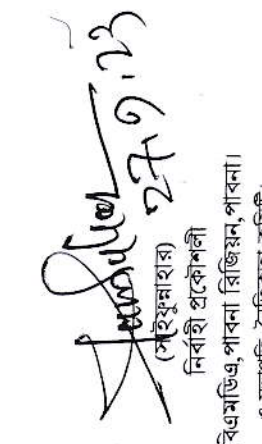 ২৭.৯.২৩
(সাইফুন্নাহার)
নির্বাহী প্রকৌশলী
বিএমডিএ, পাবনা রিজিয়ন, পাবনা।